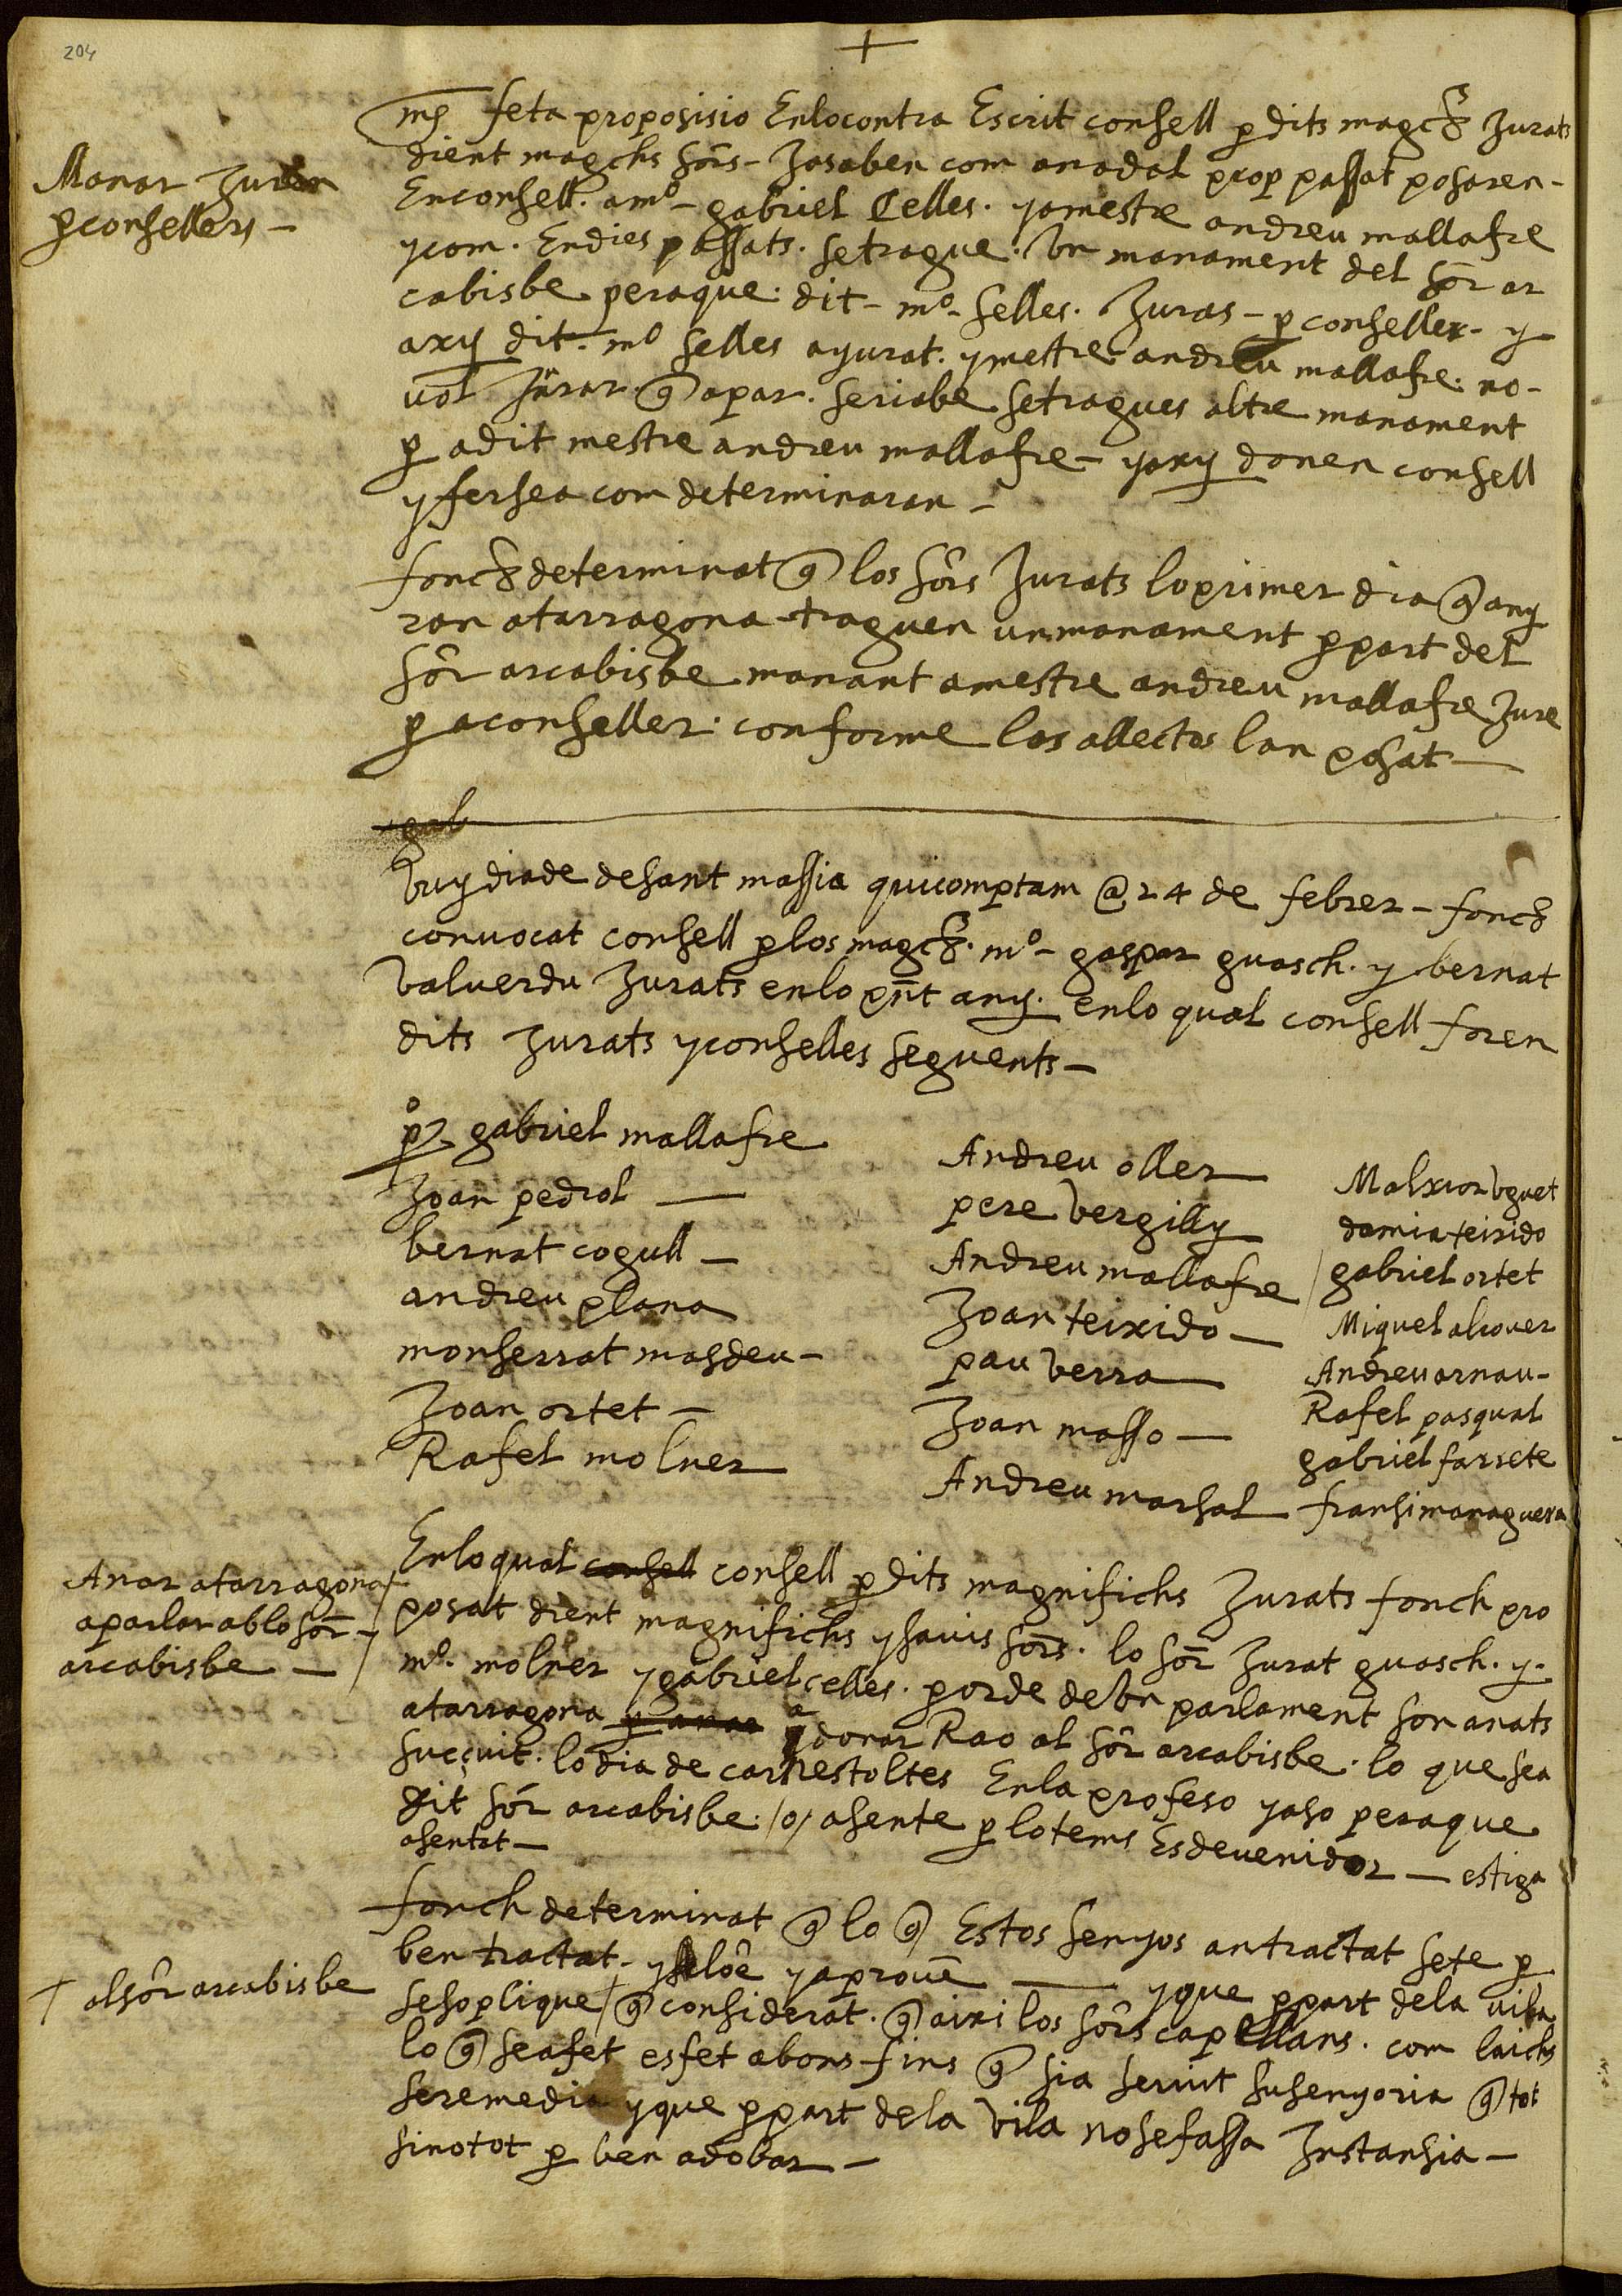 204
+
Manar Juran
p consellers -
ms feta proposisio Enlocontra Escrit consell p dits magchs Jurats
dient magchs sors - Jasaben com anadal prop passat posaren -
Enconsell. amº - gabriel Celles. yamestre andreu mallafre
ycom. Endies passats. setrague. Vn manament del sor ar
cabisbe peraque. dit - mº - selles. Juras - p conseller - y
axy dit. mº selles ayurat. ymestre andreu mallafre. no -
vol Jurar. q apar. seriabe setragues altre manament
p adit mestre andreu mallafre - yaxy donen consell
yfersea com determinaran -
fonch determinat q los sors Jurats loprimer dia q any
ran atarragona traguen unmanament p part del
sor arcabisbe manant amestre andreu mallafre Jure
p aconseller. conforme los allectes lan posat -
Vuy diade desant massia quicomptam @ 24 de febrer - fonch
convocat consell p los magchs. mº - gaspar guasch. y bernat
Valverdu Jurats enlo pnt any. enlo qual consell foren
dits Jurats yconselles seguents -
pº gabriel mallafre
Joan pedrol -
bernat cogull -
andreu plana
monserrat masdeu -
Joan ortet -
Rafel molner
Andreu oller
pere Vergilly
Andreu mallafre
Joan teixido -
pau Verra
Joan masso -
Andreu marsal
Malxior Vguet
damia teixido
gabriel ortet
Miquel alcouer
Andreu arnau -
Rafel pasqual
gabriel farrete
fransi managuera
Anar atarragona
aparlar ablo sor
arcabisbe -
Enloqual consell consell p dits magnifichs Jurats fonch pro
posat dient magnifichs ysavis sors. lo sor Jurat guasch. y.
mº. molner ygabriel celles. p orde de Vn parlament son anats
atarragona p anar a donar Rao al sor arcabisbe. lo que sea
sucçuit. lodia de carnestoltes Enla profeso yaso peraque
dit sor arcabisbe. /o/ asente p lotems Esdevenidor - estiga
asentat -
fonch determinat q lo q Estos senyos antractat sete p
ben tractat - y seloe yaproue - yque p part dela vila
sesoplique / q considerat. q aixi los sors capellans. com laichs
+ alsor arcabisbe
lo q seafet esfet abons fins q sia servit susenyoria q tot
seremedia yque p part dela Vila nosefassa Instansia -
sinotot p ben adobar -